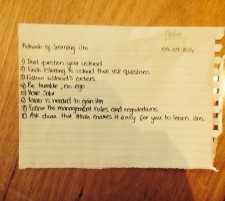 Adaab of learning ilm
1) Dont question your ustaad
2) Finish listening to ustaad than ask questions
3) Follow ustaad's orders
4) Be humble, no ego
5) Have Sabr
6) is needed to gain ilm
7) Follow the management rules and regulations
8) Ask duaa that Allah makes it easy for you to learn ilm.